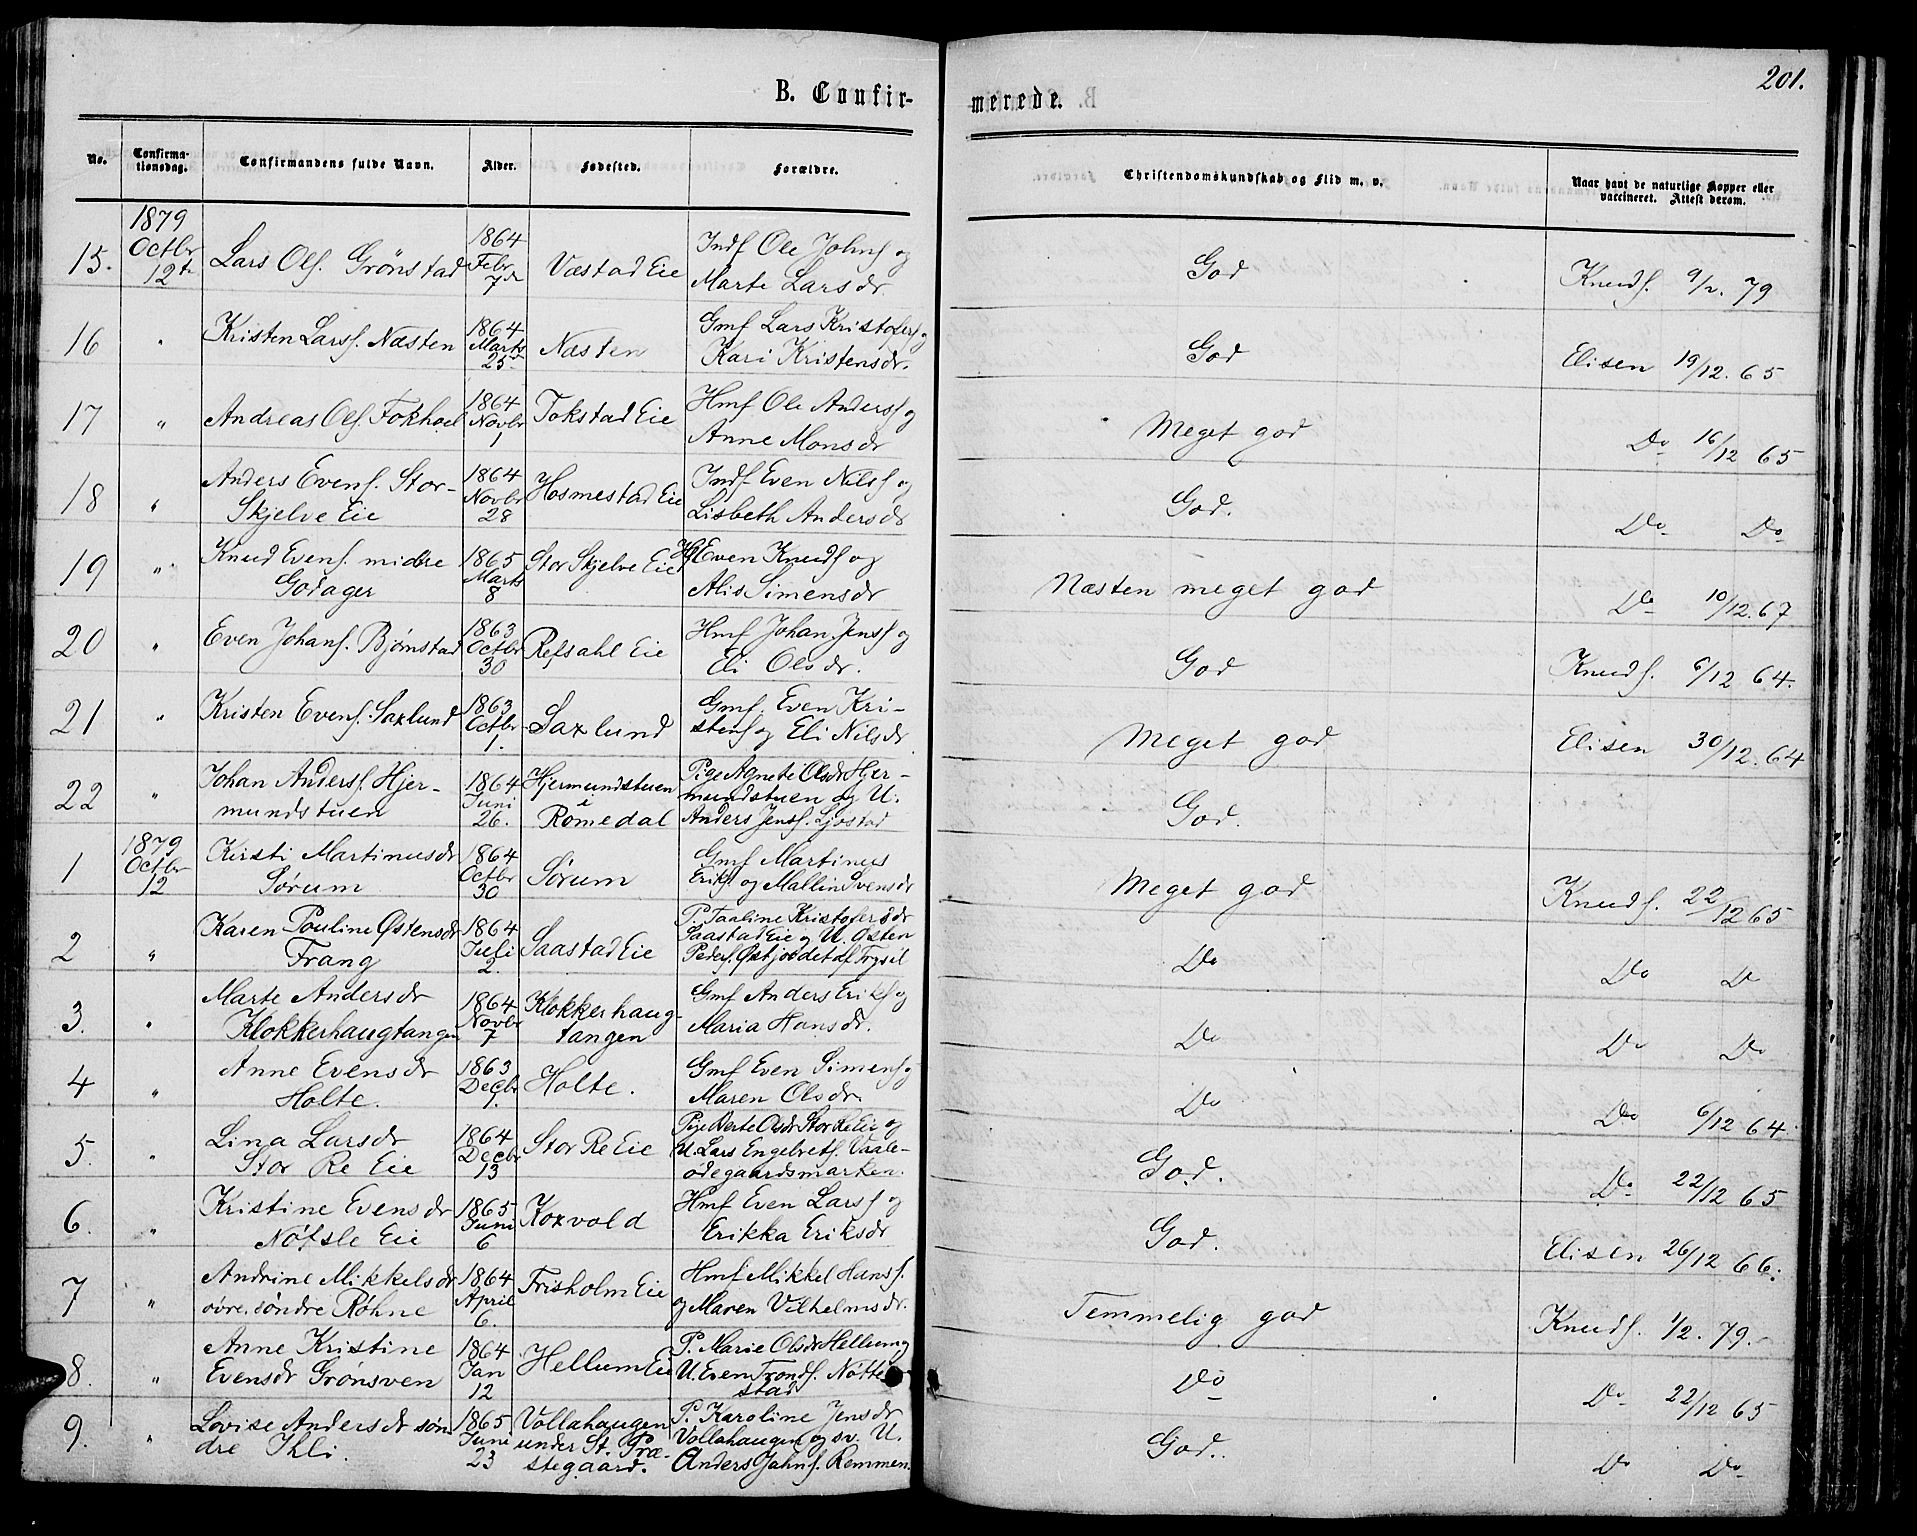 B. Confir-
No.
Confirma-
tionsdag.
Confirmandens fulde Navn.
Alder.
Fødested.
Forældre.
15.
1879
Octbr
12te
Lars Ols. Grönstad
1864
Febr
7de
Væstad Eie
Inds Ole Johns og
Marte Larsdr.
16
"
Kristen Larss. Næsten
1864
Marts
25
Næsten
Gmf Lars Kristofers og
Kari Kristensdr.
17
"
Andreas Ols. Fokhoel
1864
Novbr
1
Tokstad Eie
Hmf Ole Anderss og
Anne Monsdr
18
"
Anders Evens. Stor-
Skjelve Eie
1864
Novbr
28
Hosmestad Eie
Inds Even Nilss og
Lisbeth Andersdr
19
"
Knud Evens. midtre
Godager
1865
Marts
8
Stor Skjelve Eie
Even Knuds og
Alis Simensdr
20
"
Even Johans. Bjørnstad
1863
Octbr
30
Refsahl Eie
Hmf Johan Jenss og
Eli Olsdr.
21
"
Kristen Evens. Saxlund
1863
Octbr
1.
Saxlund
Gmf. Even Kri-
stens og Eli Nilsdr
22
"
Johan Anderss. Hjer-
mundstuen
1864
Juni
26.
Hjermundstuen
i
Romedal
Pige Agnete Olsdr Hjer-
mundstuen og U.
Anders Jenss. Ljostad
1
1879
Octbr
12
Kirsti Martinusdr
Sørum
1864
Octbr
30
Sørum
Gmf Martinus
Eriks og Mallin Svensdr
2
"
Karen Pouline Østensdr
Frang
1864
Juli
2.
Saastad Eie
P. Taaline Kristofersdr
Saastad Eie og U. Østen
Peders. Østjordet af Trysil
3.
"
Marte Andersdr
Klokkerhaugtangen
1864
Novbr
7
Klokkerhaug-
tangen
Gmf Anders Eriks og
Maria Hansdr.
4
"
Anne Evensdr
Holte.
1863
Decbr
1.
Holte.
Gmf Even Simens og
Maren Olsdr.
5.
"
Lina Larsdr
Stor Re Eie
1864
Decbr
13
Stor Re Eie
Pige Berte Olsdr Stor Re Eie og
U. Lars Engebrets. Vaale-
ødegaardsmarken.
6.
"
Kristine Evensdr
Nötsle Eie
1865
Juni
6
Koxvold
Hmf Even Larss og
Erikka Eriksdr
7
"
Andrine Mikkelsdr
övre, söndre Röhne
1864
April
6.
Frisholm Eie
Hmf Mikkel Hanss.
og Maren Vilhelmsdr.
8.
"
Anne Kristine
Evensdr Grönsven
1864
Jan
12
Hellum Eie
P. Marie Olsdr Hellum og
U. Even Tronds. Nötte-
stad
9.
"
Lovise Andersdr søn
dre Ihli.
1865
Juni
23
Vollahaugen
under St. Præ-
stegaard.
P. Karoline Jensdr
Vollahaugen og sv. U.
Anders Jahns. Remmen.
201.
merede.
Christendomskundskab og Flid m. v.
Naar havt de naturlige Kopper eller
vaccineret. Attest derom.
God
Knuds. 9/2. 79
God
Elisen 19/12. 65
Meget god
Do 16/12 65
God.
Do Do
Næsten meget god
Do 10/12. 67
God
Knuds. 6/12 64.
Meget god
Elisen 30/12. 64
God.
Meget god
Knuds. 22/12 65
Do
Do Do
Do
Do Do
Do
Do 6/12 64
God.
Do 22/12 65
God.
Elisen 26/12 66.
Temmelig god
Knuds. 1/2. 79.
Do
Do 22/12 65
God.
Do Do